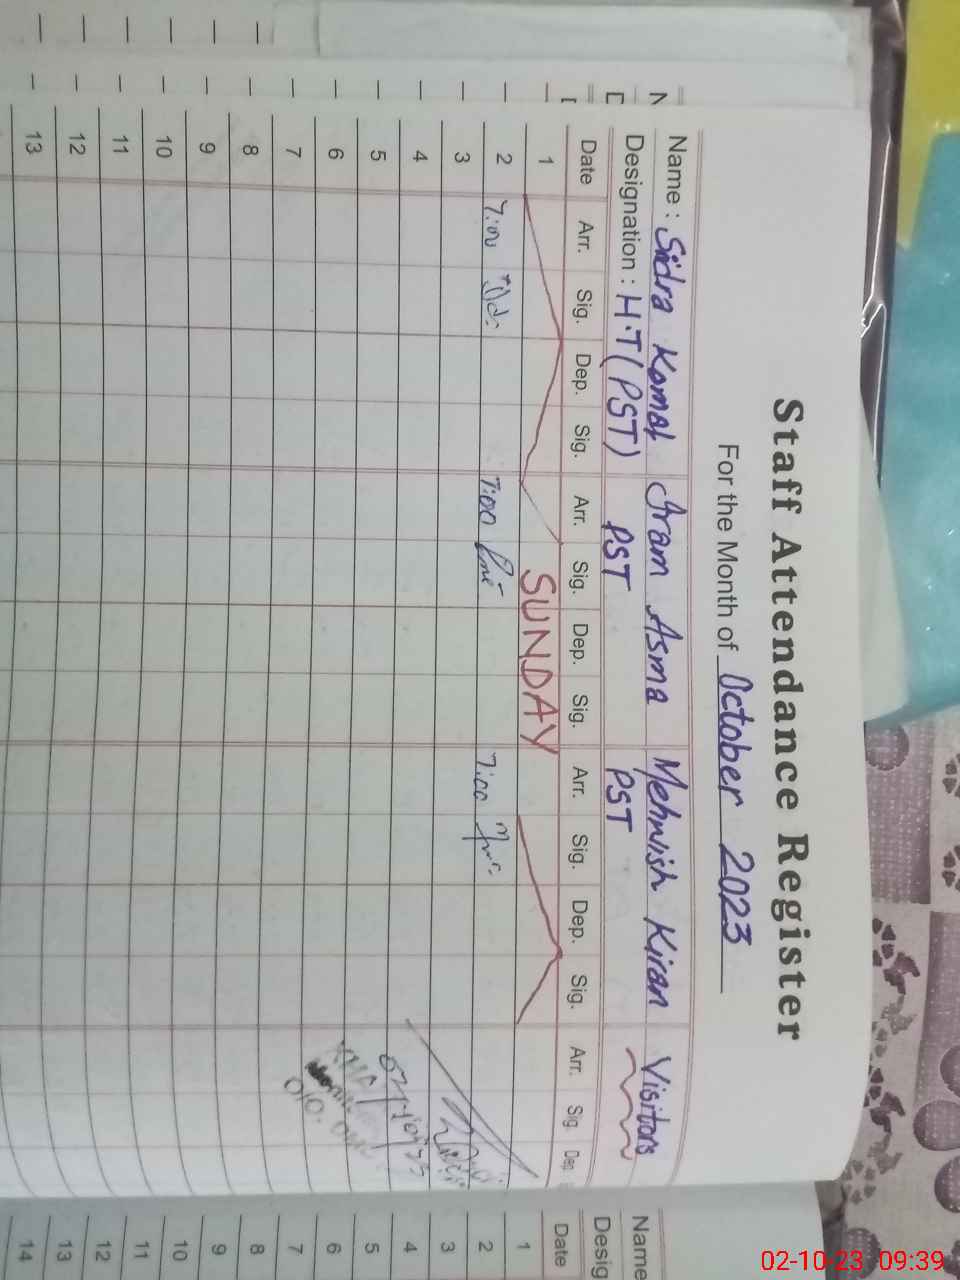 Staff Attendance Register
For the Month of October 2023
Name : Sidra Komal Iram Asma Mehwish Kiran Visitors
Designation : H.T (PST) PST PST
Date Arr. Sig. Dep. Sig. Arr. Sig. Dep. Sig. Arr. Sig. Dep. Sig. Arr. Sig. Dep
1 SUNDAY
2 7:00 7:00 7:00
3
4
5
6
7
8
9
10
11
12
13
Name
Desig
Date
1
2
3
4
5
6
7
8
9
10
11
12
13
14
02-10-23 09:39